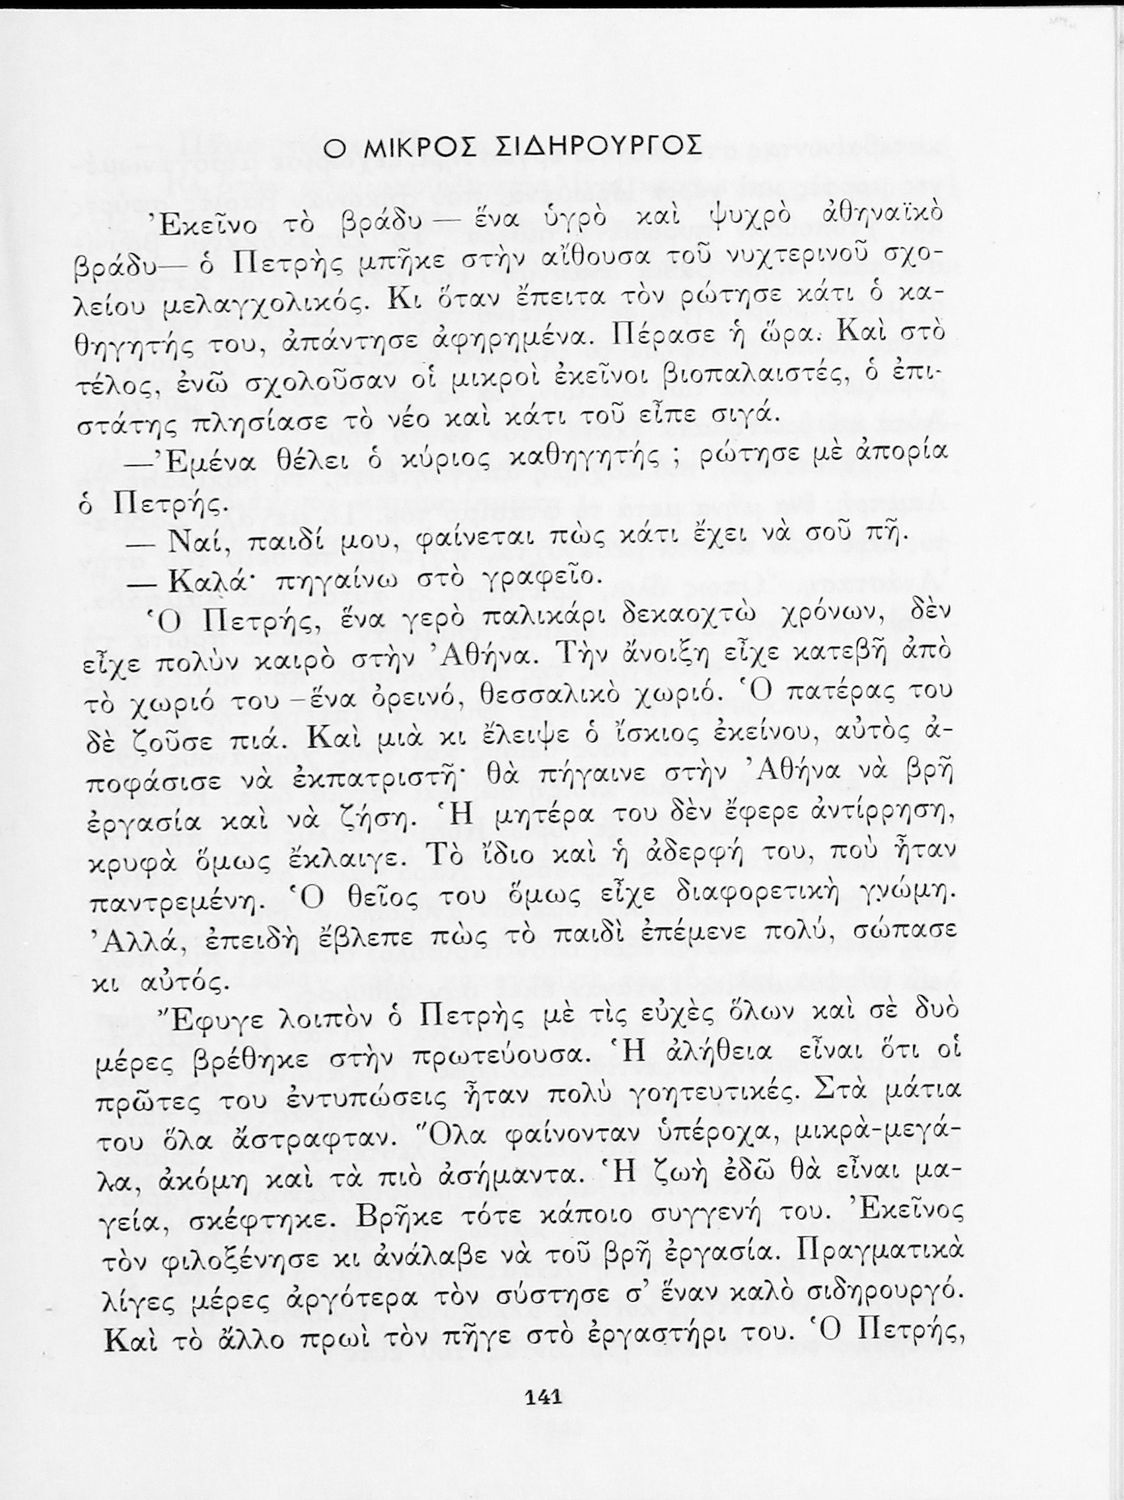 Ο ΜΙΚΡΟΣ ΣΙΔΗΡΟΥΡΓΟΣ
Ἐκεῖνο τὸ βράδυ — ἕνα ὑγρὸ καὶ ψυχρὸ ἀθηναϊκὸ
βράδυ— ὁ Πετρὴς μπῆκε στὴν αἴθουσα τοῦ νυχτερινοῦ σχο-
λείου μελαγχολικός. Κι ὅταν ἔπειτα τὸν ρώτησε κάτι ὁ κα-
θηγητής του, ἀπάντησε ἀφηρημένα. Πέρασε ἡ ὥρα. Καὶ στὸ
τέλος, ἐνῶ σχολοῦσαν οἱ μικροὶ ἐκεῖνοι βιοπαλαιστές, ὁ ἐπι-
στάτης πλησίασε τὸ νέο καὶ κάτι τοῦ εἶπε σιγά.
—Ἐμένα θέλει ὁ κύριος καθηγητής ; ρώτησε μὲ ἀπορία
ὁ Πετρής.
— Ναί, παιδί μου, φαίνεται πὼς κάτι ἔχει νὰ σοῦ πῆ.
— Καλά· πηγαίνω στὸ γραφεῖο.
Ὁ Πετρής, ἕνα γερὸ παλικάρι δεκαοχτὼ χρόνων, δὲν
εἶχε πολὺν καιρὸ στὴν Ἀθήνα. Τὴν ἄνοιξη εἶχε κατεβῆ ἀπὸ
τὸ χωριό του –ἕνα ὀρεινό, θεσσαλικὸ χωριό. Ὁ πατέρας του
δὲ ζοῦσε πιά. Καὶ μιὰ κι ἔλειψε ὁ ἴσκιος ἐκείνου, αὐτὸς ἀ-
ποφάσισε νὰ ἐκπατριστῆ· θὰ πήγαινε στὴν Ἀθήνα νὰ βρῆ
ἐργασία καὶ νὰ ζήση. Ἡ μητέρα του δὲν ἔφερε ἀντίρρηση,
κρυφὰ ὅμως ἔκλαιγε. Τὸ ἴδιο καὶ ἡ ἀδερφή του, ποὺ ἦταν
παντρεμένη. Ὁ θεῖος του ὅμως εἶχε διαφορετικὴ γνώμη.
Ἀλλά, ἐπειδὴ ἔβλεπε πὼς τὸ παιδὶ ἐπέμενε πολύ, σώπασε
κι αὐτός.
Ἔφυγε λοιπὸν ὁ Πετρὴς μὲ τὶς εὐχὲς ὅλων καὶ σὲ δυὸ
μέρες βρέθηκε στὴν πρωτεύουσα. Ἡ ἀλήθεια εἶναι ὅτι οἱ
πρῶτες του ἐντυπώσεις ἦταν πολὺ γοητευτικές. Στὰ μάτια
του ὅλα ἄστραφταν. Ὅλα φαίνονταν ὑπέροχα, μικρὰ-μεγά-
λα, ἀκόμη καὶ τὰ πιὸ ἀσήμαντα. Ἡ ζωὴ ἐδῶ θὰ εἶναι μα-
γεία, σκέφτηκε. Βρῆκε τότε κάποιο συγγενή του. Ἐκεῖνος
τὸν φιλοξένησε κι ἀνάλαβε νὰ τοῦ βρῆ ἐργασία. Πραγματικὰ
λίγες μέρες ἀργότερα τὸν σύστησε σ' ἕναν καλὸ σιδηρουργό.
Καὶ τὸ ἄλλο πρωὶ τὸν πῆγε στὸ ἐργαστήρι του. Ὁ Πετρής,
141